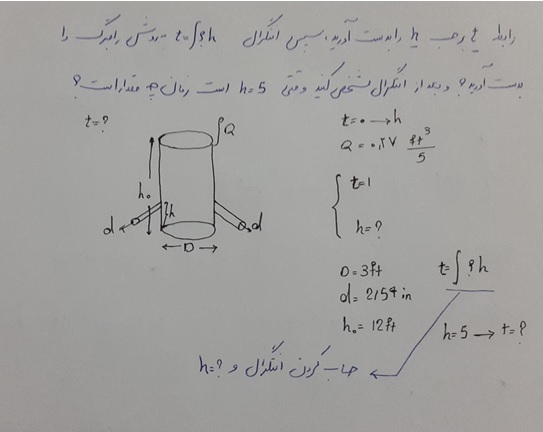 رابطه t برحسب h را بدست آورید، سپس انتگرال t=∫?h به روش رامبرگ را
بدست آورید؟ و بعد از انتگرال مشخص کنید وقتی h=5 است زمان چه مقدار است؟
t=?
Q
h₀
h
d
d
D
t=0 → h
Q = 0.27 ft³/5
{ t=1
h=?
D = 3ft
d = 2.54 in
h₀ = 12ft
t=∫?h
h=5 → t=?
حساب کردن انتگرال و h=?